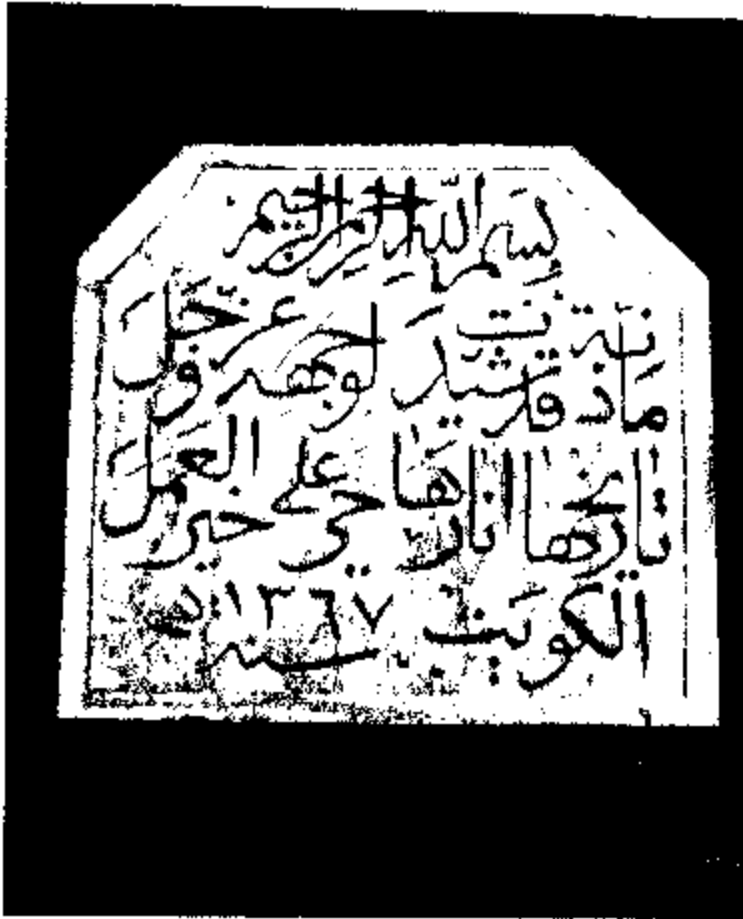 بسم الله الرحمن الرحيم
مأذنة قد شيدت لوجهه عز وجل
تاريخها انارها حي على خير العمل
الكويت سنة ١٣٦٧ هـ